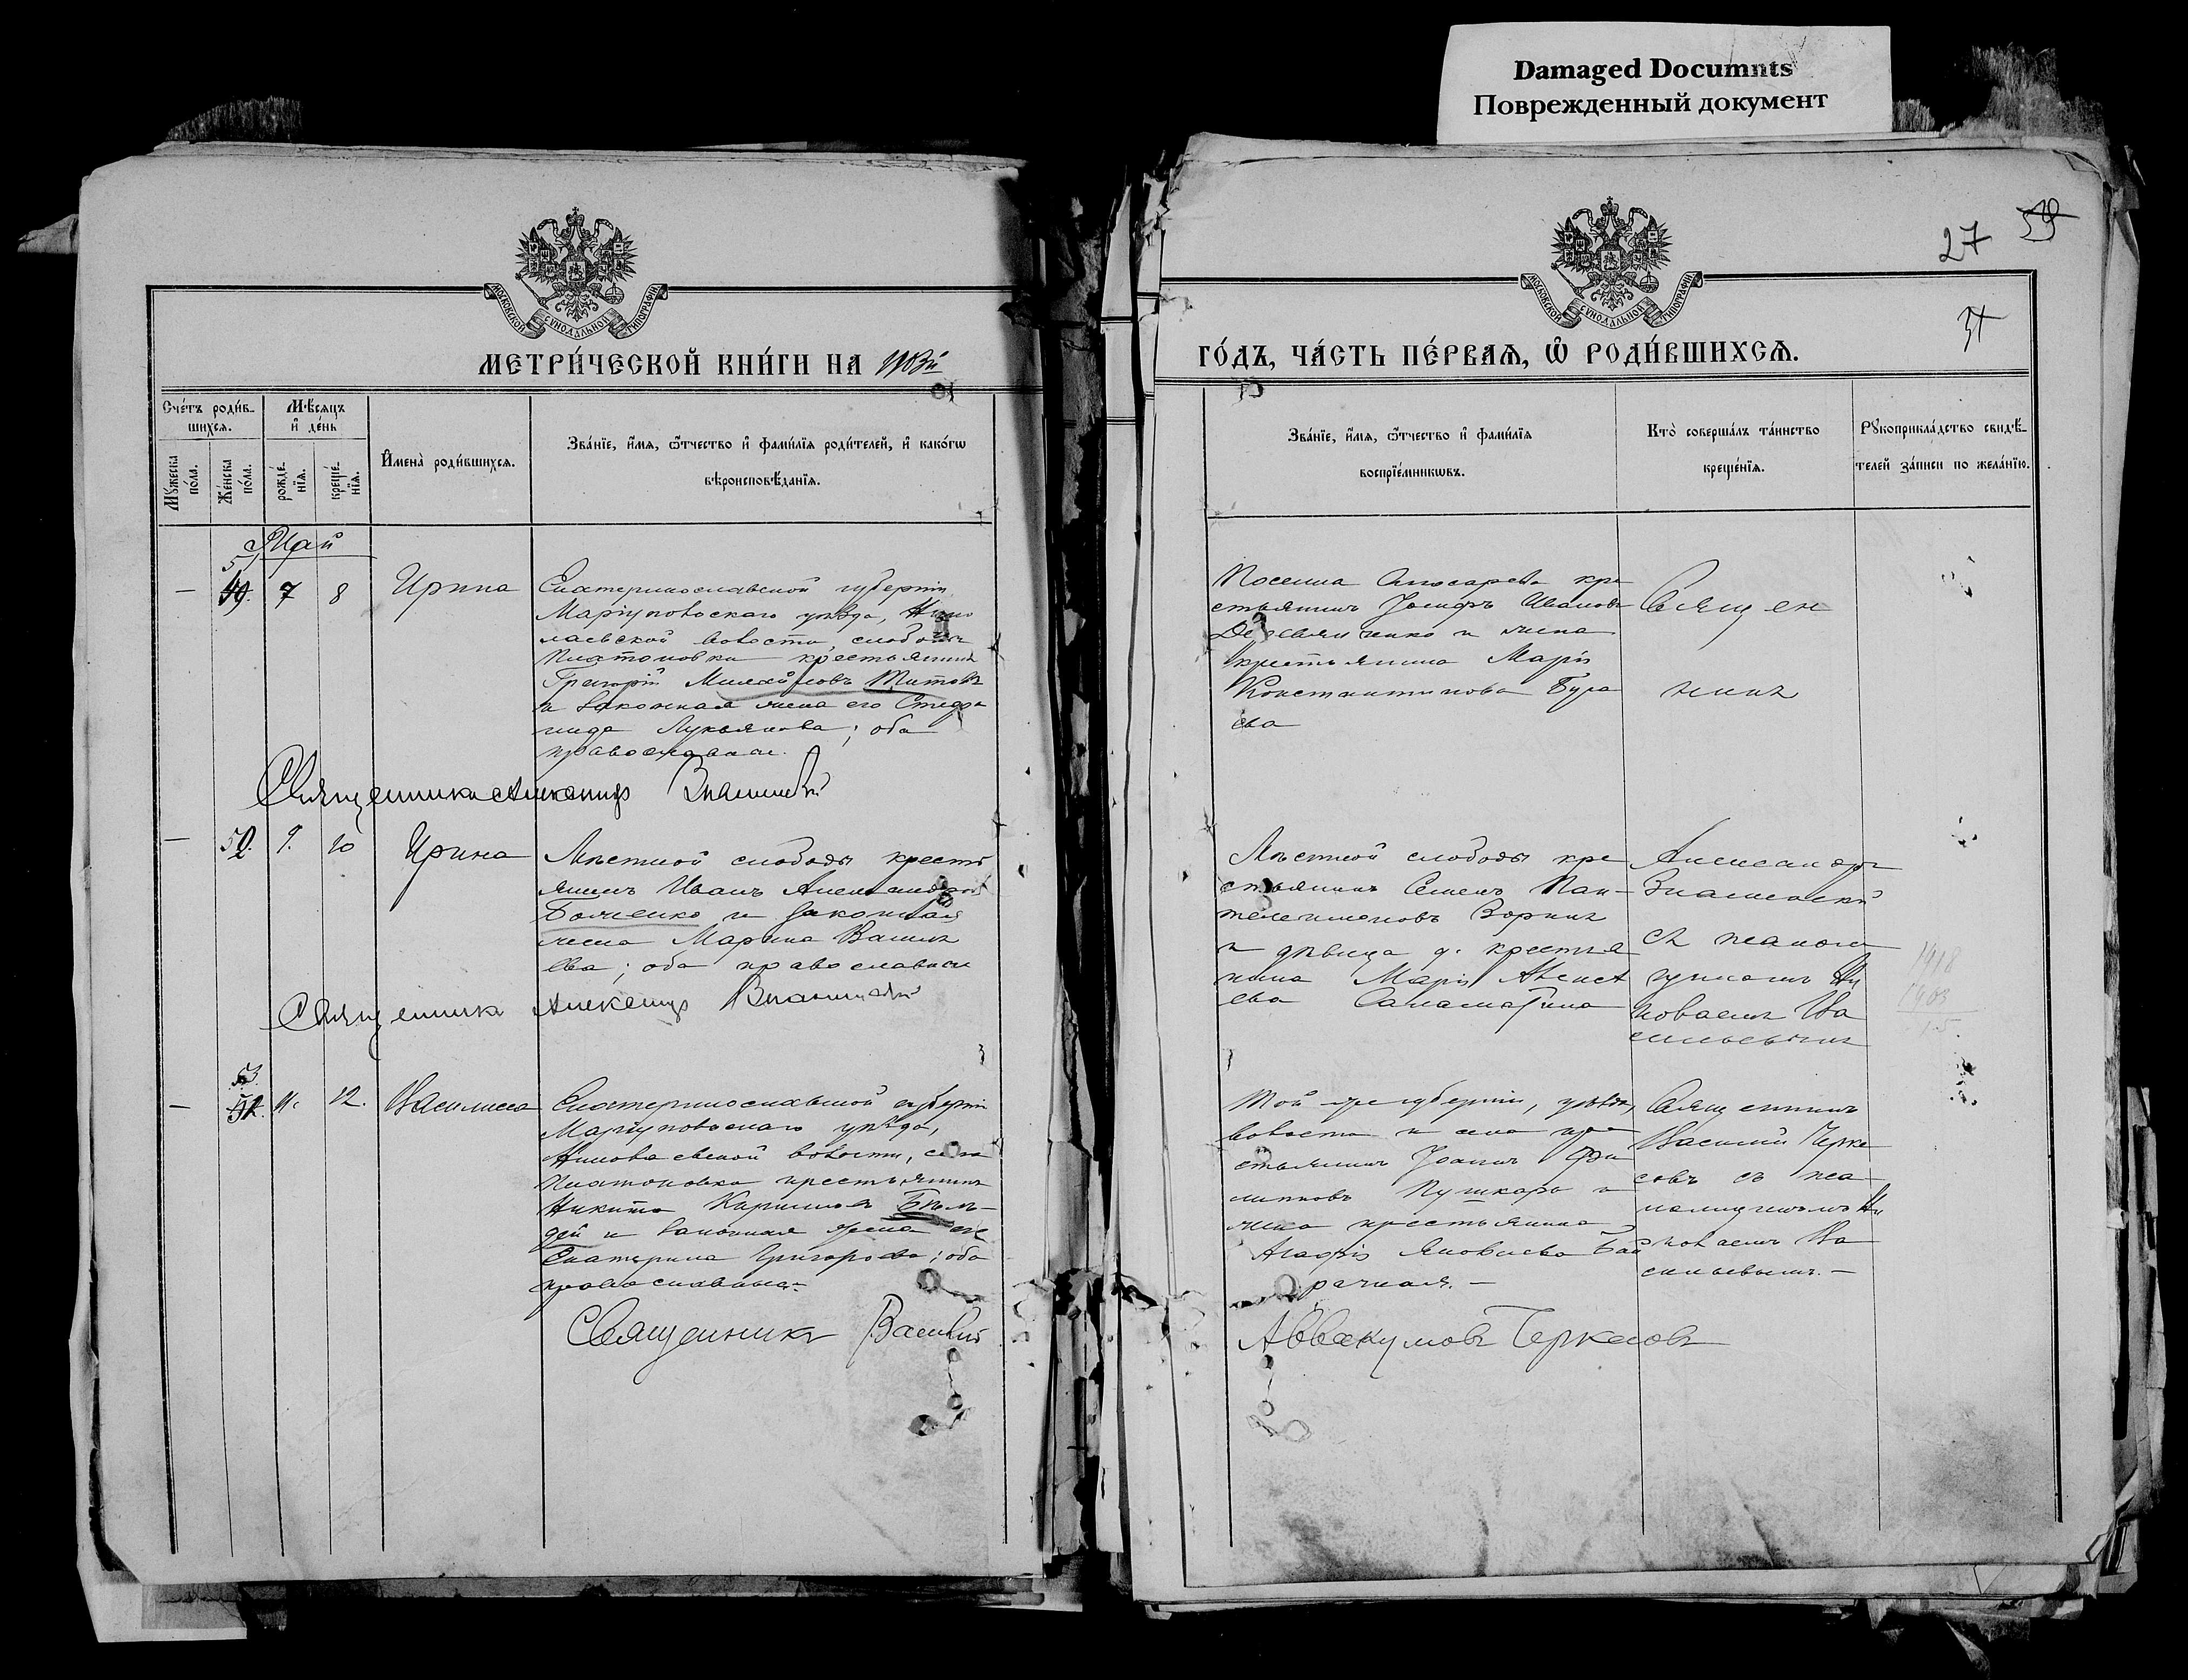 Damaged Documnts
Поврежденный документ
27 59
37
МОСКОВСКОЙ СѴНОДАЛЬНОЙ ТИПОГРАФІИ
МОСКОВСКОЙ СѴНОДАЛЬНОЙ ТИПОГРАФІИ
МЕТРИ́ЧЕСКОЙ КНИ́ГИ НА 1903й
ГО́ДЪ, ЧА́СТЬ ПЕ́РВАѦ, Ѡ҆ РОДИ́ВШИХСѦ.
Сче́тъ роди́в-
шихсѧ.
Мꙋ́жеска по́ла.
Же́нска по́ла.
Мѣ́сѧцъ
и҆ де́нь
рожде́нїѧ.
креще́нїѧ.
И҆мена̀ роди́вшихсѧ.
Зва́нїе, и҆́мѧ, ѻ҆́тчество и҆ фами́лїѧ роди́телей, и҆ како́гѡ
вѣроисповѣ́данїѧ.
Зва́нїе, и҆́мѧ, ѻ҆́тчество и҆ фами́лїѧ
воспрїе́мникѡвъ.
Кто̀ соверша́лъ та́инство
креще́нїѧ.
Рꙋкоприкла́дство свидѣ́-
телей за́писи по жела́нїю.
Май
51
49. 7 8 Ирина
Екатеринославской губерніи
Маріупольскаго уѣзда, Нико
лаевской волости, слободы
Платоновки крестьянинъ
Григорій Михайловъ Титовъ
и законная жена его Стефа
нида Лукьянова; оба
православные.
крестьянинъ Іосифъ Ивановъ
и жена
крестьянина Марія
Константинова
Священ
никъ
Священникъ Александръ Знаменскій
— 52. 9. 10 Ирина
Мѣстной слободы кресть
янинъ Иванъ Александровъ
Божченко и законная
жена Марина Василь
ева; оба православные
Мѣстной слободы кре
стьянинъ Семенъ Пан-
телеимоновъ Зоринъ
и дѣвица д. крестья
нина Марія Алексѣ
ева Саламатина
Александръ
Знаменскій
съ псаломщ
Ни
колаемъ Ва
сильевымъ
1918
1903
15
Священникъ Александръ Знаменскій
53.
— 52. 11. 12. Василиса
Екатеринославской губерніи
Маріупольскаго уѣзда,
Николаевской волости, села
Платоновка крестьянинъ
Никита Кирилловъ Бѣль-
дей и законная жена его
Екатерина Григорьева; оба
православные.
Той же губерніи, уѣзда,
волости и села кре
стьянинъ Іоаннъ Фи
липповъ Пушкарь и
жена крестьянина
Агафія Яковлева Бай
рачная. —
Священникъ
Василій Черка
совъ съ пса
ломщикомъ Ни
колаемъ Ва
сильевымъ. —
Священникъ Василій
Аввакумовъ Черкасовъ